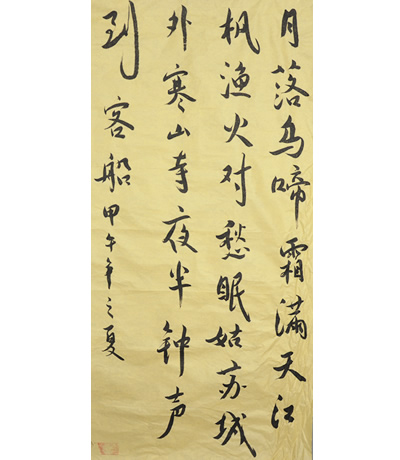 月落乌啼霜满天江
枫渔火对愁眠姑苏城
外寒山寺夜半钟声
到客船甲午年之夏